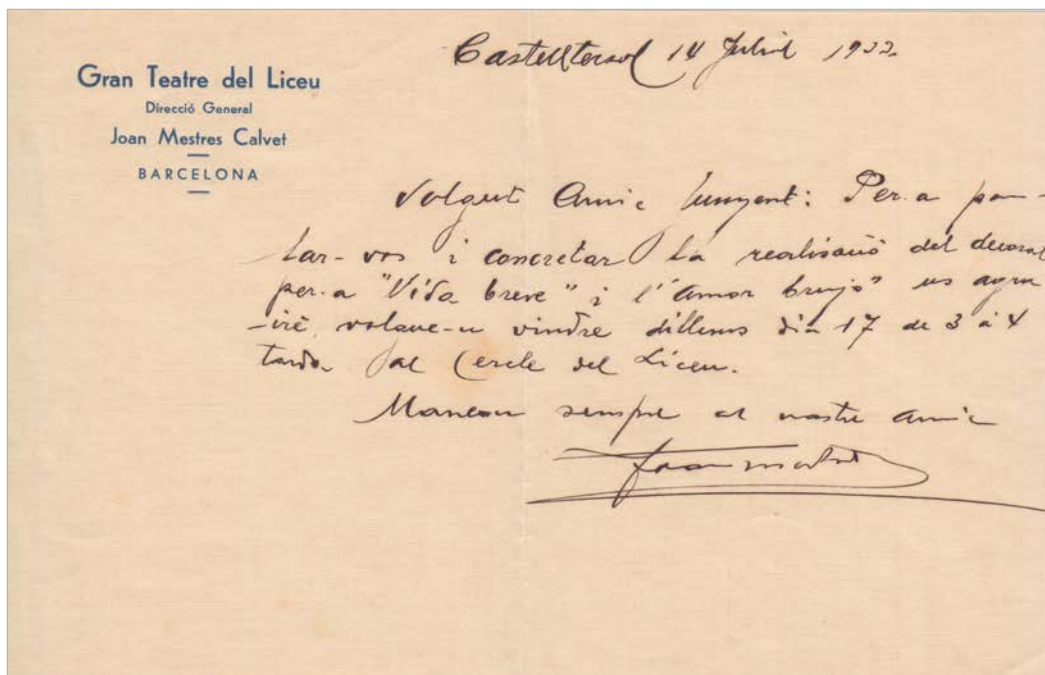 Gran Teatre del Liceu
Direcció General
Joan Mestres Calvet
BARCELONA
Castelltersol 14 Juliol 1933
Volgut Amic Junyent: Per.a par-
lar-vos i concretar la realisació del decorat
per.a "Vida breve" i l'"Amor brujo" us agra
-iré volgue-u vindre dilluns dia 17 de 3 à 4
tarda al Cercle del Liceu.
Maneou sempre al vostre amic
Joan Mestres